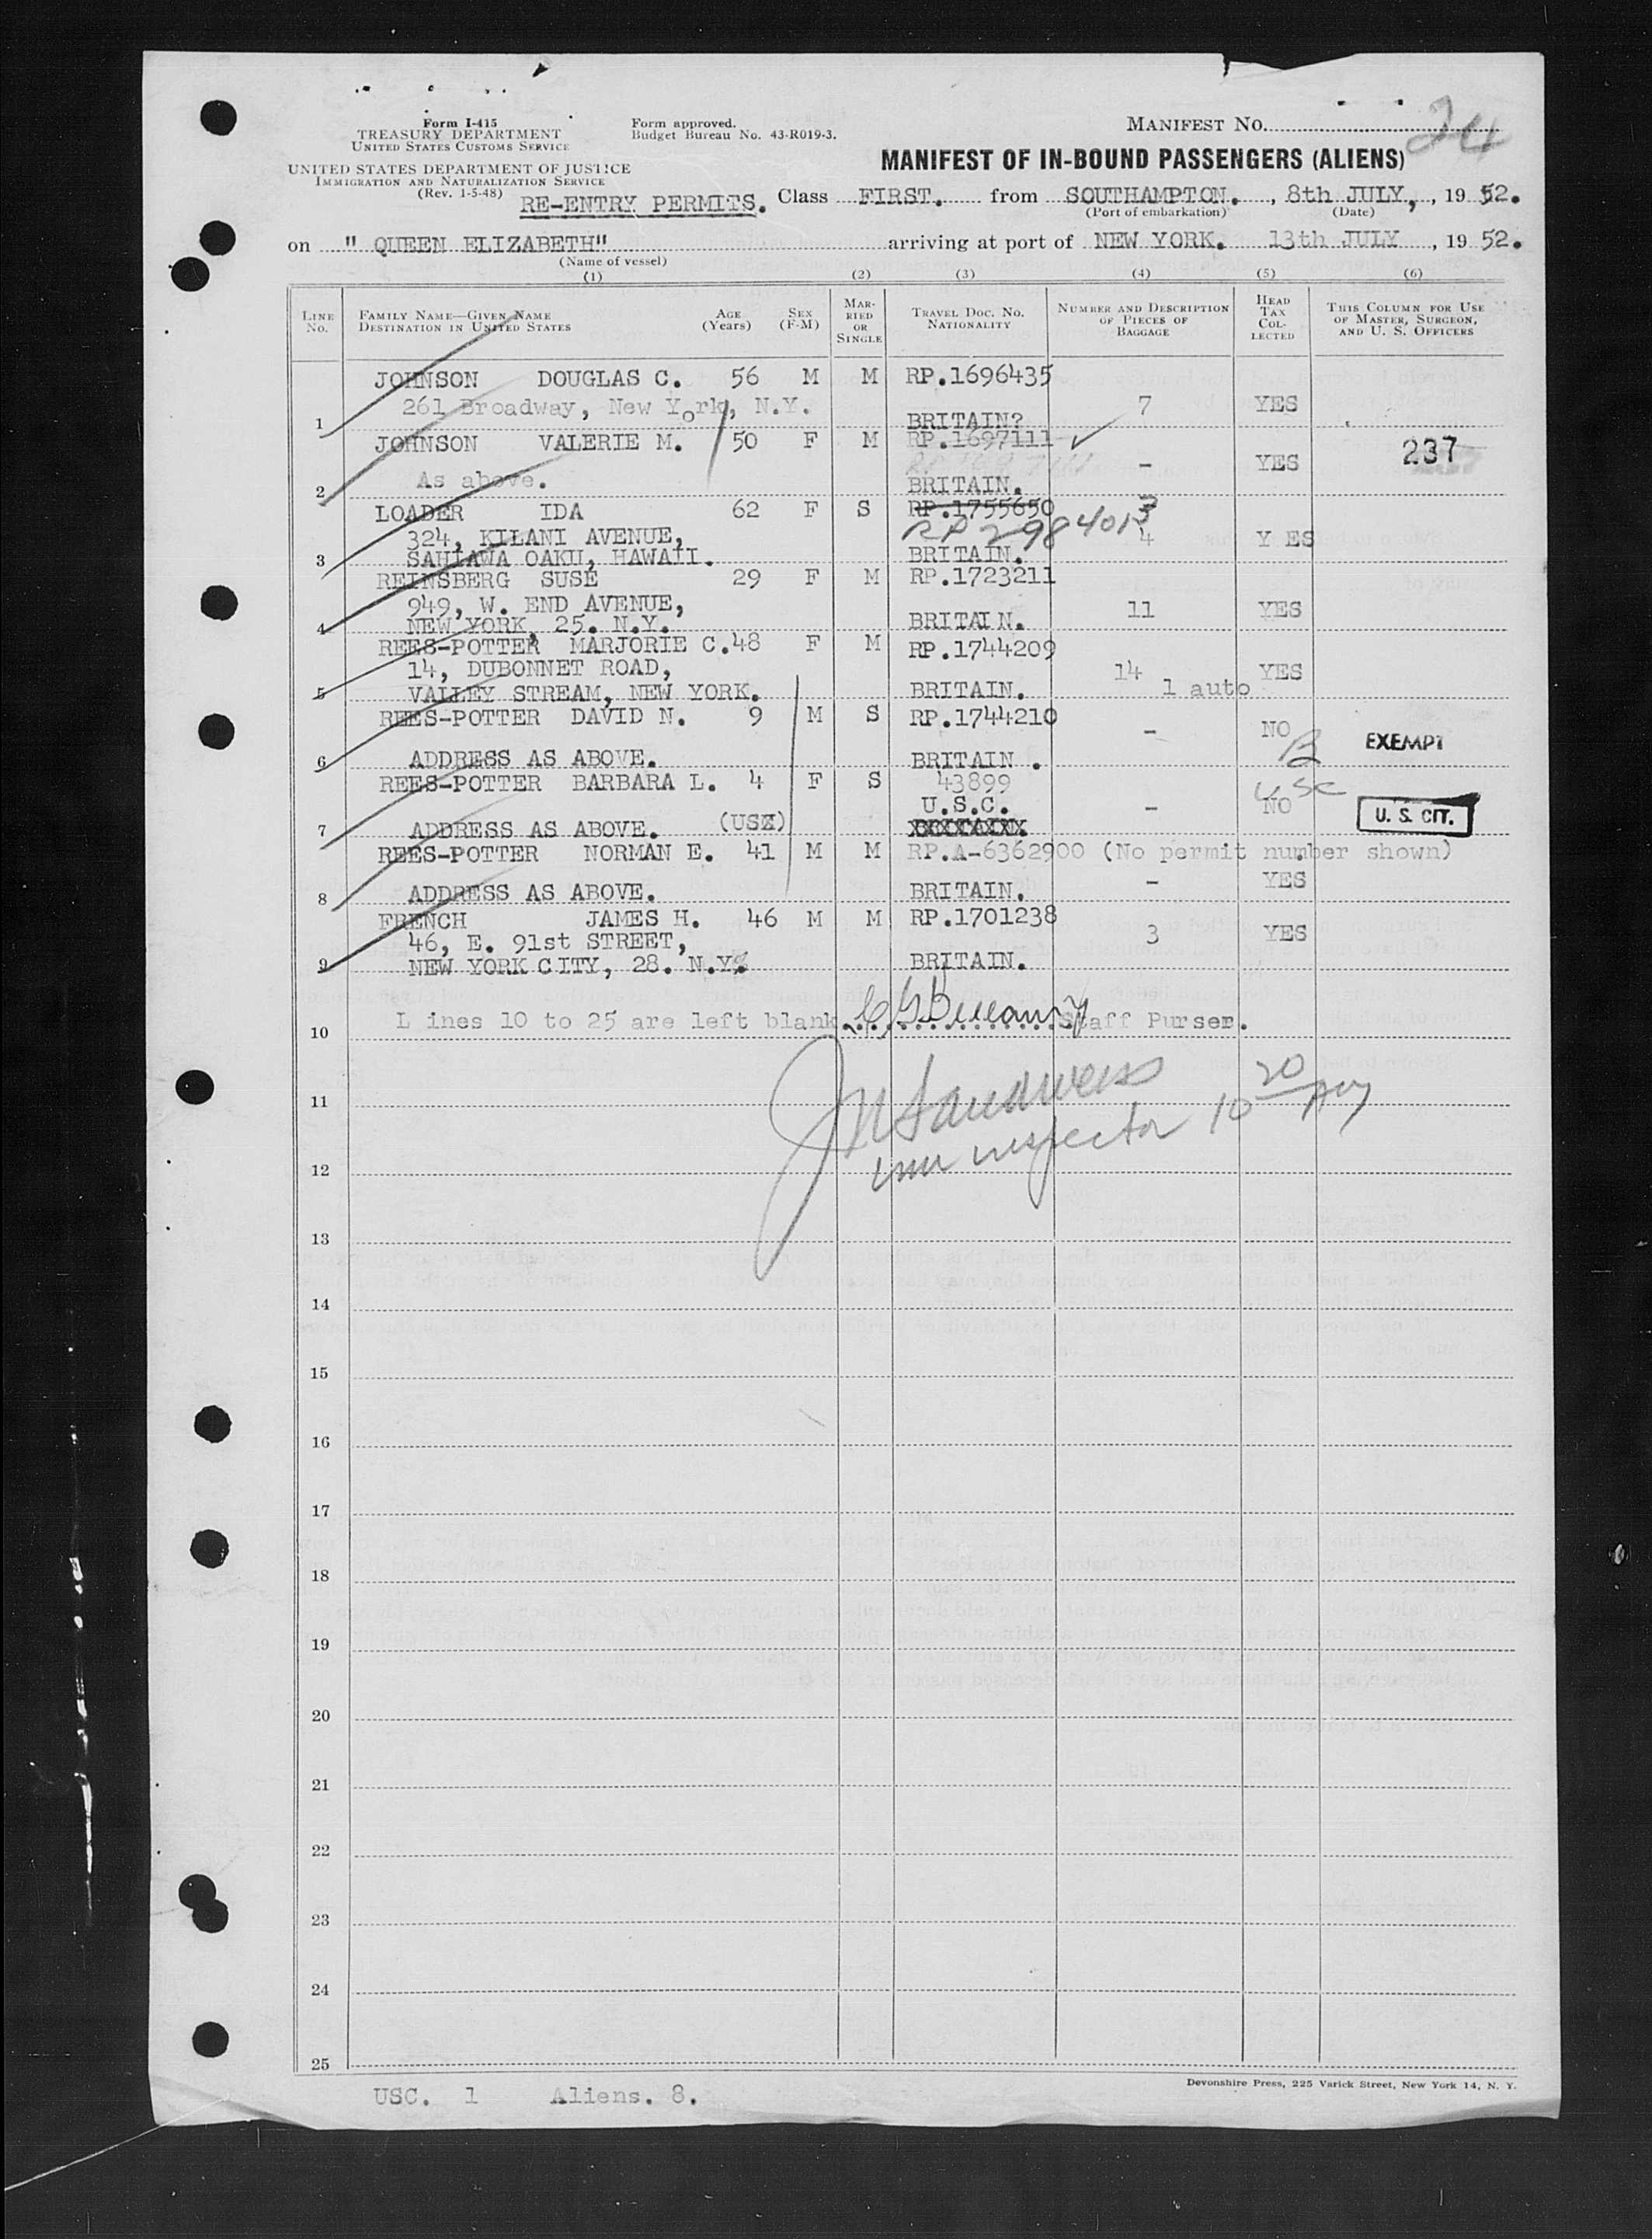 Form I-415
TREASURY DEPARTMENT
UNITED STATES CUSTOMS SERVICE
UNITED STATES DEPARTMENT OF JUSTICE
IMMIGRATION AND NATURALIZATION SERVICE
(Rev. 1-5-48)
Form approved.
Budget Bureau No. 43-R019-3.
MANIFEST NO. 24
MANIFEST OF IN-BOUND PASSENGERS (ALIENS)
RE-ENTRY PERMITS. Class FIRST. from SOUTHAMPTON. , 8th JULY, , 19 52.
(Port of embarkation) (Date)
on " QUEEN ELIZABETH" arriving at port of NEW YORK. 13th JULY , 19 52.
(Name of vessel)
(1) (2) (3) (4) (5) (6)
LINE NO. FAMILY NAME—GIVEN NAME DESTINATION IN UNITED STATES AGE (Years) SEX (F-M) MARRIED OR SINGLE TRAVEL DOC. NO. NATIONALITY NUMBER AND DESCRIPTION OF PIECES OF BAGGAGE HEAD TAX COLLECTED THIS COLUMN FOR USE OF MASTER, SURGEON, AND U. S. OFFICERS
JOHNSON DOUGLAS C. 56 M M RP.1696435
261 Broadway, New York, N.Y. 7 YES
1 BRITAIN?
JOHNSON VALERIE M. 50 F M RP.1697111
- YES 237
2 As above. BRITAIN.
LOADER IDA 62 F S RP.1755650
RP 2984013
324, KILANI AVENUE, 4 Y ES
3 SAHIAWA OAKU, HAWAII. BRITAIN.
REINSBERG SUSE 29 F M RP.1723211
949, W. END AVENUE, 11 YES
4 NEW YORK, 25. N.Y. BRITAIN.
REES-POTTER MARJORIE C. 48 F M RP.1744209
14, DUBONNET ROAD, 14 YES
5 VALLEY STREAM, NEW YORK. BRITAIN. 1 auto
REES-POTTER DAVID N. 9 M S RP.1744210
- NO EXEMPT
6 ADDRESS AS ABOVE. BRITAIN .
REES-POTTER BARBARA L. 4 F S 43899
usc
U.S.C. - NO U. S. CIT.
7 ADDRESS AS ABOVE. (USX)
REES-POTTER NORMAN E. 41 M M RP.A-6362900 (No permit number shown)
- YES
8 ADDRESS AS ABOVE. BRITAIN.
FRENCH JAMES H. 46 M M RP.1701238
46, E. 91st STREET, 3 YES
9 NEW YORK CITY, 28. N.Y. BRITAIN.
10 L ines 10 to 25 are left blank. Staff Purser.
11
imm inspector 10 20
12
13
14
15
16
17
18
19
20
21
22
23
24
25
Devonshire Press, 225 Varick Street, New York 14, N. Y.
USC. 1 Aliens. 8.